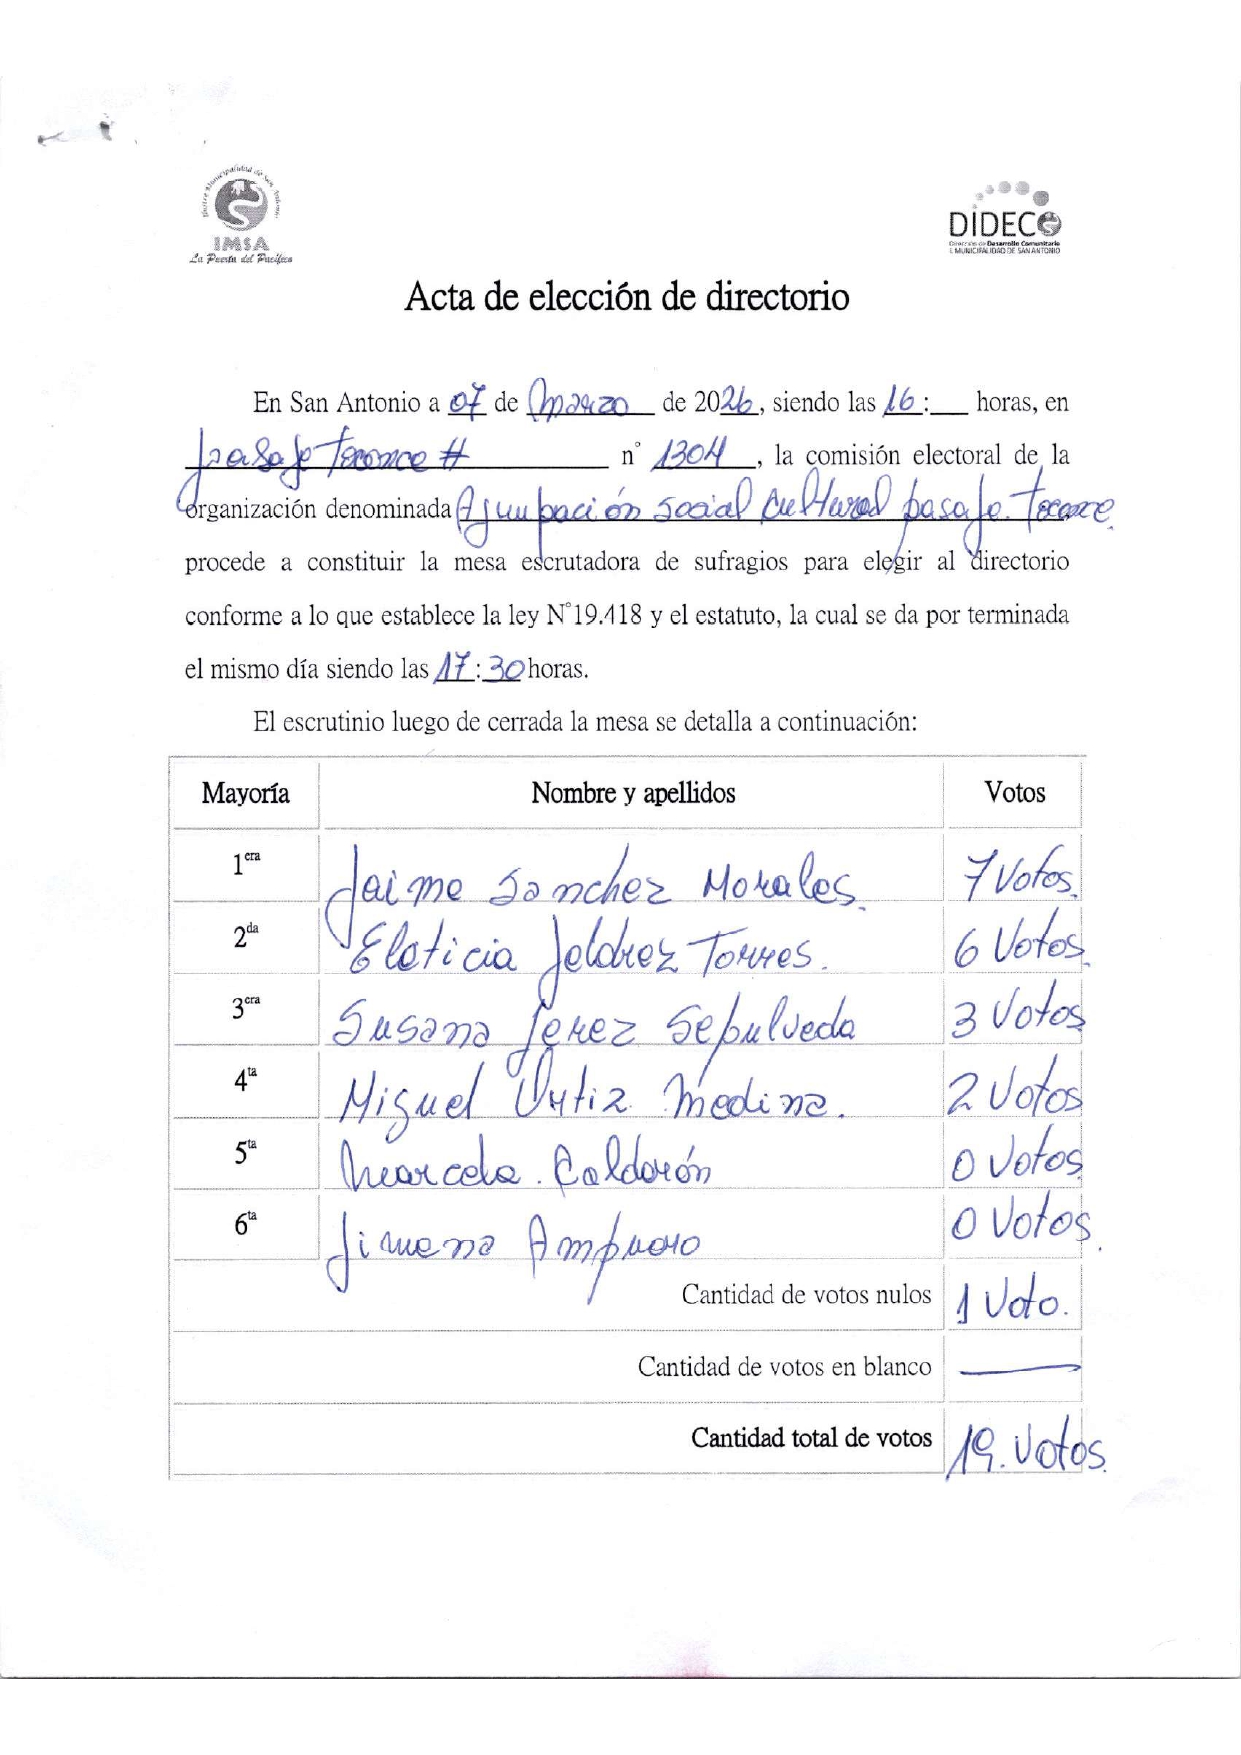 Ilustre Municipalidad de San Antonio
IMSA
La Puerta del Pacífico
DIDECO
Dirección de Desarrollo Comunitario
I. MUNICIPALIDAD DE SAN ANTONIO
Acta de elección de directorio
En San Antonio a 07 de Marzo de 2026, siendo las 16:___ horas, en
pasaje Teconce # n° 1304, la comisión electoral de la
organización denominada Agrupación social cultural pasaje Toconce
procede a constituir la mesa escrutadora de sufragios para elegir al directorio
conforme a lo que establece la ley N°19.418 y el estatuto, la cual se da por terminada
el mismo día siendo las 17:30 horas.
El escrutinio luego de cerrada la mesa se detalla a continuación:
Mayoría Nombre y apellidos Votos
1era Jaime Sanchez Morales. 7 Votos.
2da Eleticia Jeldrez Torres. 6 Votos.
3era Susana Jerez Sepulveda 3 Votos
4ta Miguel Ortiz Medina. 2 Votos
5ta Marcela. Calderón 0 Votos
6ta Jimena Ampuero 0 Votos.
Cantidad de votos nulos 1 Voto.
Cantidad de votos en blanco —
Cantidad total de votos 19. Votos.